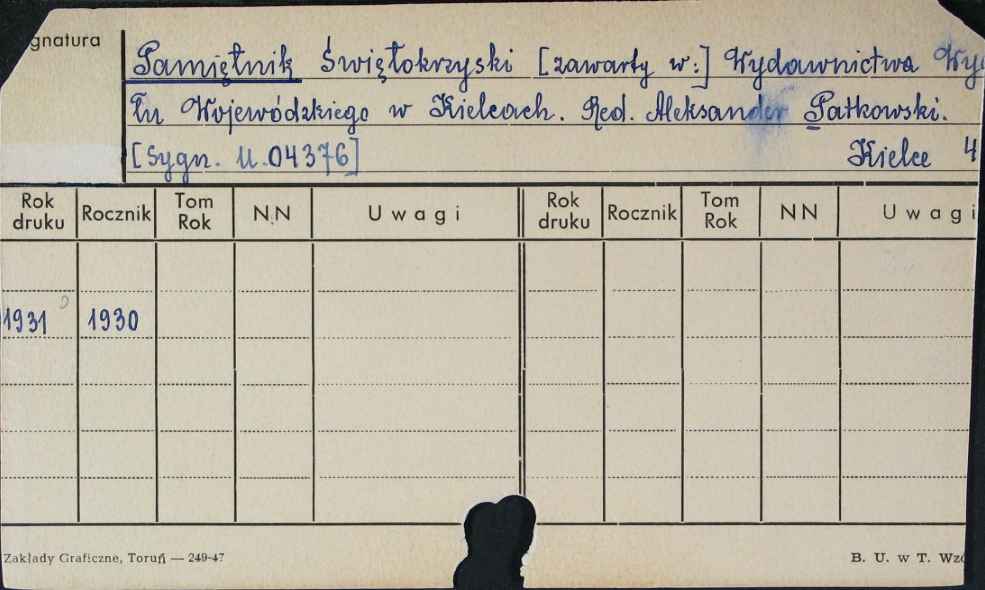 gnatura
Pamiętnik Świętokrzyski [zawarty w:] Wydawnictwa Wy
łu Wojewódzkiego w Kielcach. Red. Aleksander Patkowski.
[Sygn. U.04376] Kielce 4
Rok druku Rocznik Tom Rok NN Uwagi Rok druku Rocznik Tom Rok NN Uwagi
1931 1930
Zakłady Graficzne, Toruń — 249-47 B. U. w T. Wzó